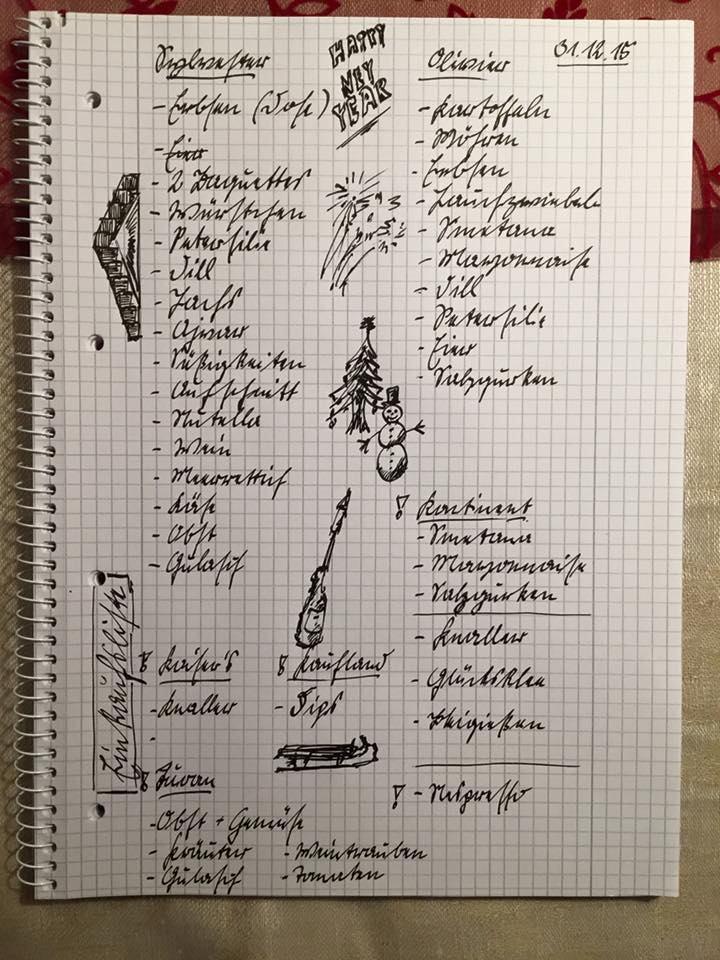 Sylvester
- Erbsen (Dose)
- Eier
- 2 Baguettes
- Würstchen
- Petersilie
- Dill
- Lachs
- Ajwar
- Süßigkeiten
- Aufschnitt
- Nutella
- Wein
- Meerrettich
- Käse
- Obst
- Gulasch
HAPPY
NEY
YEAR
Olivier
31.12.15
- Kartoffeln
- Möhren
- Erbsen
- Lauchzwiebeln
- Smetana
- Mayonnaise
- Dill
- Petersilie
- Eier
- Salzgurken
! Kontinent
- Smetana
- Mayonnaise
- Salzgurken
- Knaller
- Glücksklee
- Bleigießen
! - Nespresso
Einkaufsliste
! Kaiser's
- Knaller
-
! Kaufland
- Dips
-Obst + Gemüse
- Kräuter
- Gulasch
- Weintrauben
- Tomaten